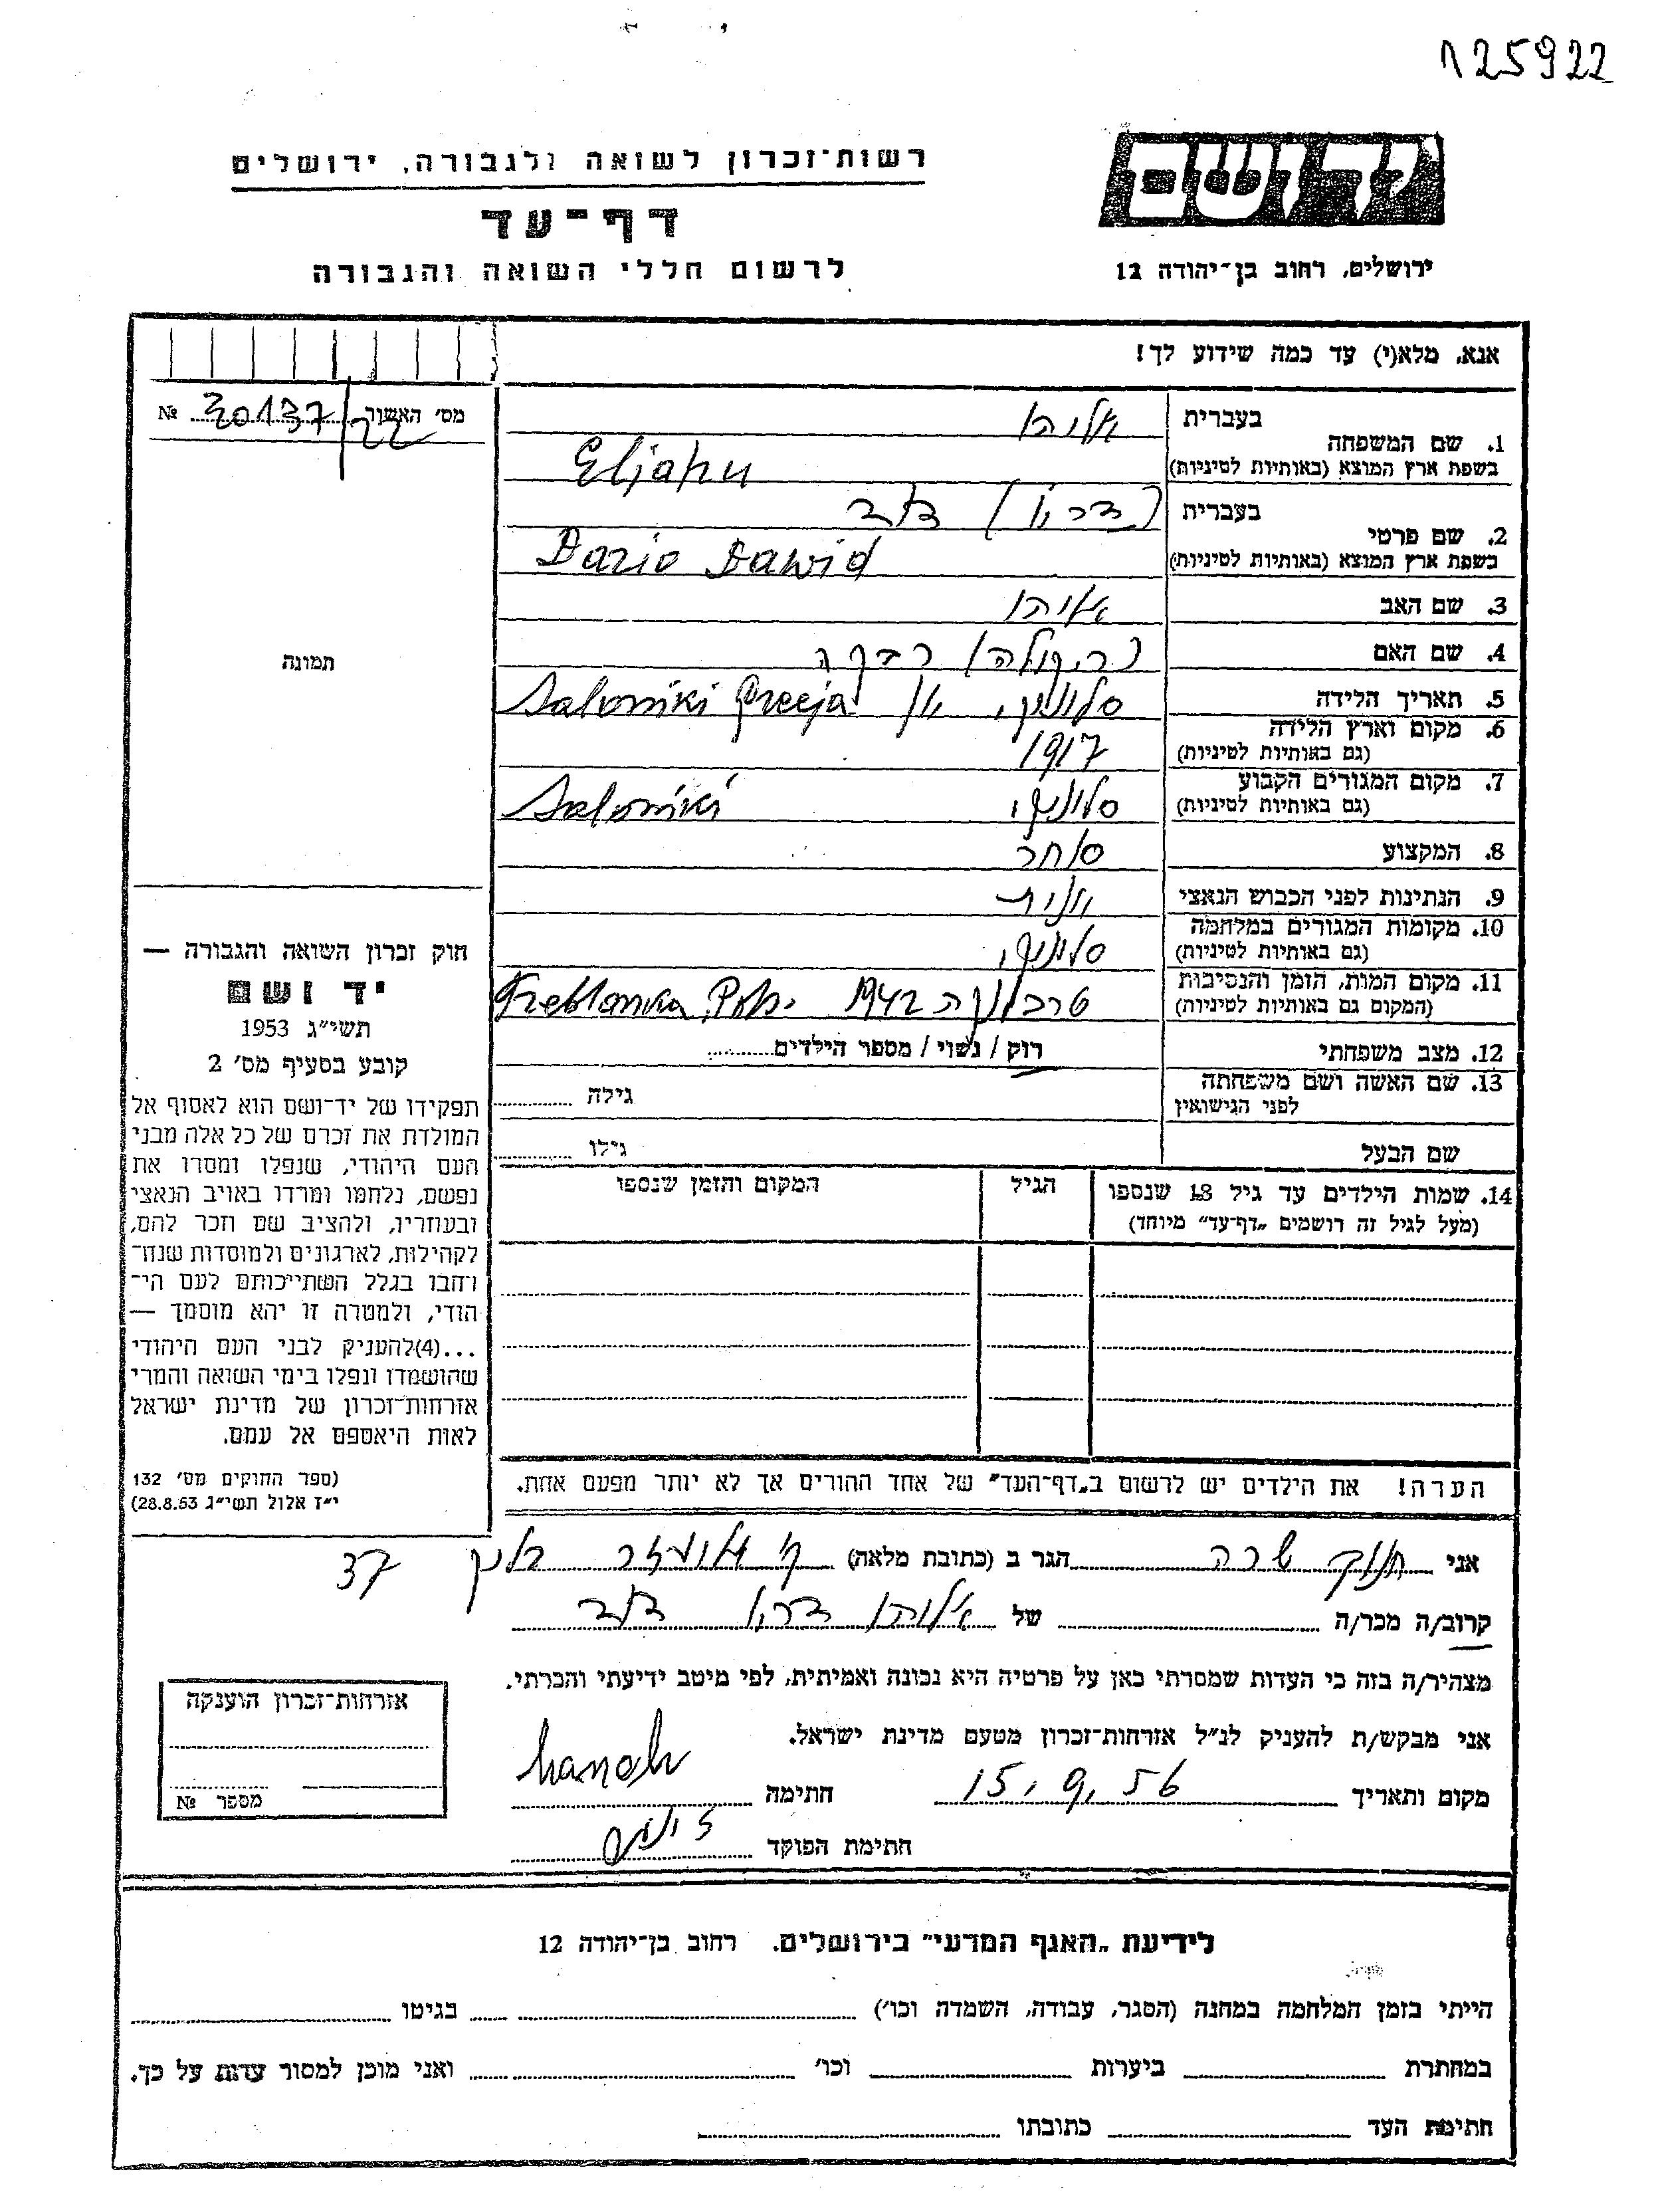 125922
יד ושם
רשות־זכרון לשואה ולגבורה, ירושלים
דף־עד
לרשום חללי השואה והגבורה
ירושלים, רחוב בן־יהודה 12
אנא, מלא(י) עד כמה שידוע לך!
מס' האשור 30137/22 №
בעברית אליהו
1. שם המשפחה
בשפת ארץ המוצא (באותיות לטיניות) Eljahu
בעברית (דריו) דוד
2. שם פרטי
בשפת ארץ המוצא (באותיות לטיניות) Dario Dawid
3. שם האב אליהו
4. שם האם רבקה
תמונה
5. תאריך הלידה סלוניקי, יון Saloniki Grecja
6. מקום וארץ הלידה
(גם באותיות לטיניות) 1917
7. מקום המגורים הקבוע
(גם באותיות לטיניות) סלוניקי, Saloniki
8. המקצוע סוחר
9. הנתינות לפני הכבוש הנאצי יונית
10. מקומות המגורים במלחמה
(גם באותיות לטיניות) סלוניקי,
11. מקום המות, הזמן והנסיבות
(המקום גם באותיות לטיניות) טרבלינקה 1942
12. מצב משפחתי רוק / נשוי / מספר הילדים
13. שם האשה ושם משפחתה
לפני הנישואין גילה
שם הבעל גילו
14. שמות הילדים עד גיל 18 שנספו הגיל המקום והזמן שנספו
(מעל לגיל זה רושמים „דף־עד" מיוחד)
חוק זכרון השואה והגבורה —
יד ושם
תשי״ג 1953
קובע בסעיף מס' 2
תפקידו של יד־ושם הוא לאסוף אל
המולדת את זכרם של כל אלה מבני
העם היהודי, שנפלו ומסרו את
נפשם, נלחמו ומרדו באויב הנאצי
ובעוזריו, ולהציב שם וזכר להם,
לקהילות, לארגונים ולמוסדות שנח־
רבו בגלל השתייכותם לעם הי־
הודי, ולמטרה זו יהא מוסמך —
...(4)להעניק לבני העם היהודי
שהושמדו ונפלו בימי השואה והמרי
אזרחות־זכרון של מדינת ישראל
לאות היאספם אל עמם.
(ספר החוקים מס' 132
י״ז אלול תשי״ג 28.8.53)
הערה! את הילדים יש לרשום ב„דף־העד" של אחד ההורים אך לא יותר מפעם אחת.
אני חנוך שרה הגר ב (כתובת מלאה) ק' אליעזר 37
קרוב/ה מכר/ה של אליהו דריו דוד
מצהיר/ה בזה כי העדות שמסרתי כאן על פרטיה היא נכונה ואמיתית, לפי מיטב ידיעתי והכרתי.
אני מבקש/ת להעניק לנ״ל אזרחות־זכרון מטעם מדינת ישראל.
מקום ותאריך 15.9.56 חתימה hanoh
חתימת הפוקד
אזרחות־זכרון הוענקה
מספר №
לידיעת „האגף המדעי" בירושלים. רחוב בן־יהודה 12
הייתי בזמן המלחמה במחנה (הסגר, עבודה, השמדה וכו') בגיטו
במחתרת ביערות וכו' ואני מוכן למסור עדות על כך.
חתימת העד כתובתו